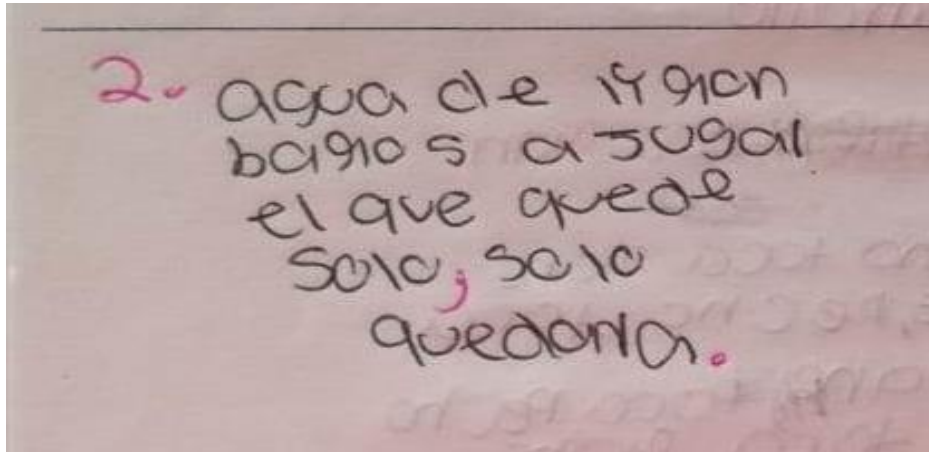 2. agua de
bamos a Jugal
el que quede
solo; solo
quedara.